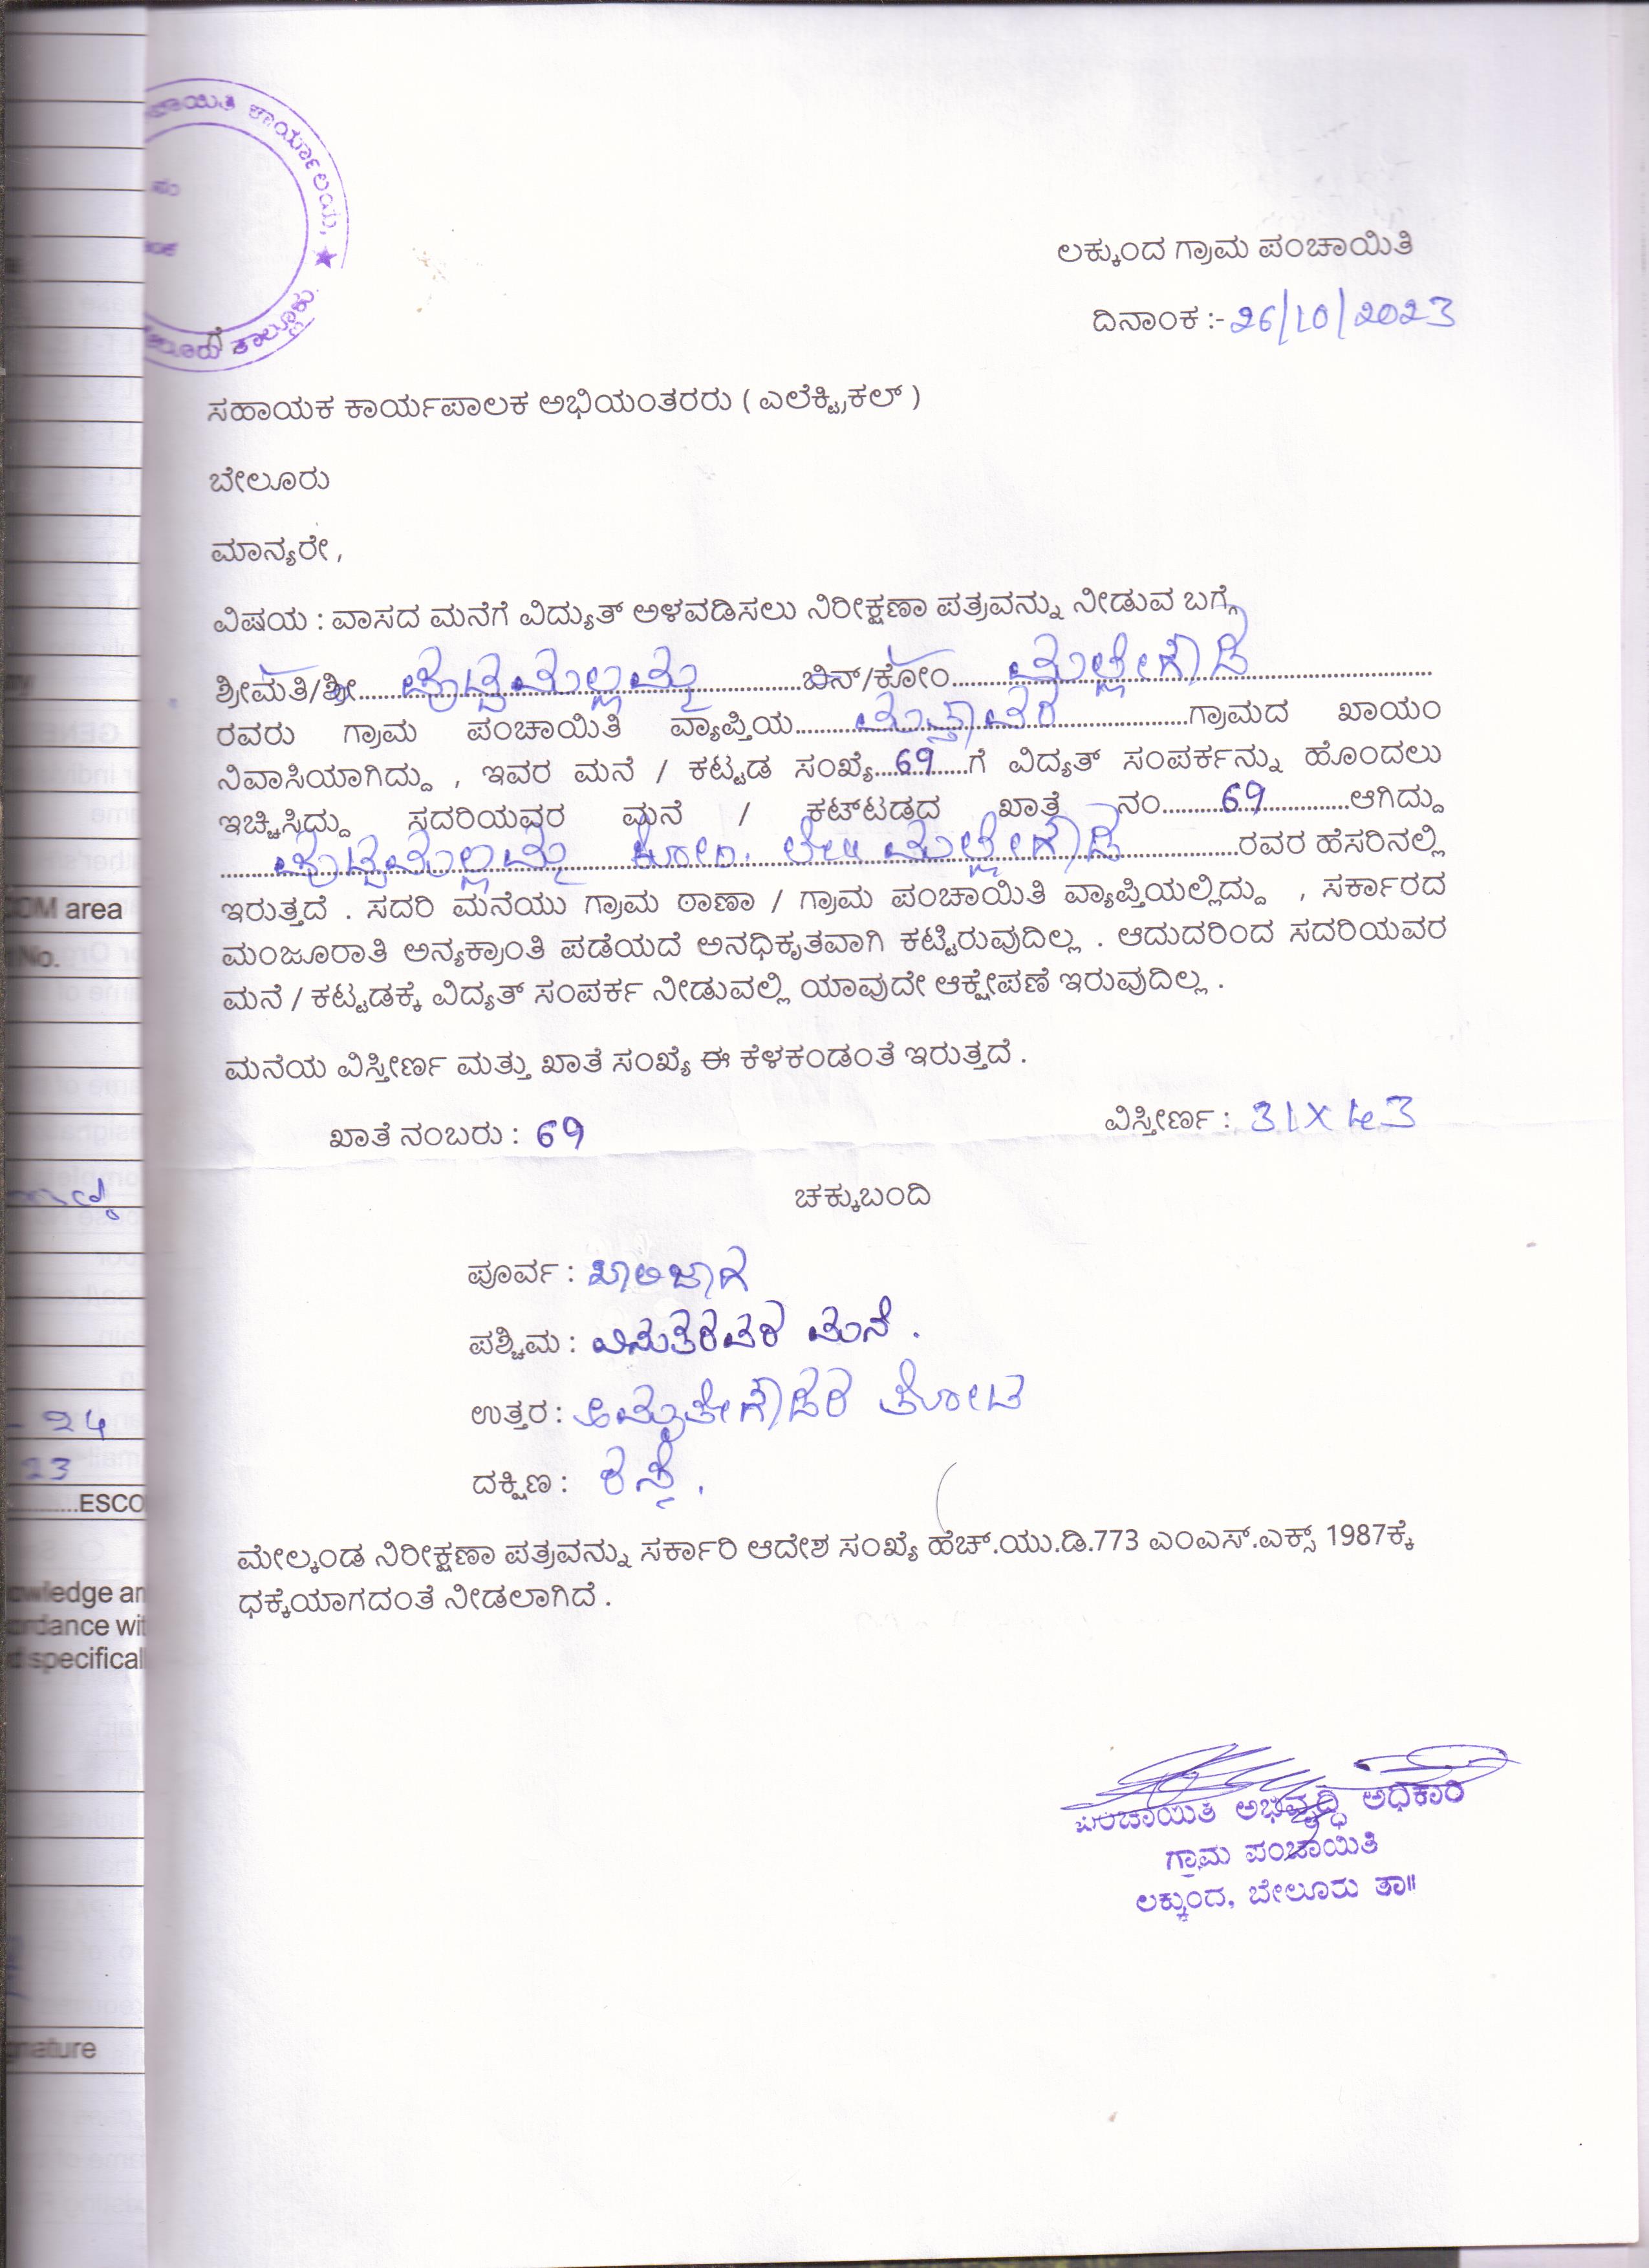 ಕಾರ್ಯಾಲಯ,
ತಾಲ್ಲೂಕು
ಲಕ್ಕುಂದ ಗ್ರಾಮ ಪಂಚಾಯಿತಿ
ದಿನಾಂಕ :- 26/10/2023
ಗೆ
ಸಹಾಯಕ ಕಾರ್ಯಪಾಲಕ ಅಭಿಯಂತರರು ( ಎಲೆಕ್ಟ್ರಿಕಲ್ )
ಬೇಲೂರು
ಮಾನ್ಯರೇ ,
ವಿಷಯ : ವಾಸದ ಮನೆಗೆ ವಿದ್ಯುತ್ ಅಳವಡಿಸಲು ನಿರೀಕ್ಷಣಾ ಪತ್ರವನ್ನು ನೀಡುವ ಬಗ್ಗೆ
ಶ್ರೀಮತಿ/ಶ್ರೀ ಪುಟ್ಟಮಲ್ಲಮ್ಮ ಬಿನ್/ಕೋಂ ಮಲ್ಲೇಗೌಡ
ರವರು ಗ್ರಾಮ ಪಂಚಾಯಿತಿ ವ್ಯಾಪ್ತಿಯ ಗ್ರಾಮದ ಖಾಯಂ
ನಿವಾಸಿಯಾಗಿದ್ದು , ಇವರ ಮನೆ / ಕಟ್ಟಡ ಸಂಖ್ಯೆ 69 ಗೆ ವಿದ್ಯತ್ ಸಂಪರ್ಕನ್ನು ಹೊಂದಲು
ಇಚ್ಚಿಸಿದ್ದು ಸದರಿಯವರ ಮನೆ / ಕಟ್‌ಟಡದ ಖಾತೆ ನಂ 69 ಆಗಿದ್ದು
ಪುಟ್ಟಮಲ್ಲಮ್ಮ ಕೋಂ. ಲೇ॥ ಮಲ್ಲೇಗೌಡ ರವರ ಹೆಸರಿನಲ್ಲಿ
ಇರುತ್ತದೆ . ಸದರಿ ಮನೆಯು ಗ್ರಾಮ ಠಾಣಾ / ಗ್ರಾಮ ಪಂಚಾಯಿತಿ ವ್ಯಾಪ್ತಿಯಲ್ಲಿದ್ದು , ಸರ್ಕಾರದ
ಮಂಜೂರಾತಿ ಅನ್ಯಕ್ರಾಂತಿ ಪಡೆಯದೆ ಅನಧಿಕೃತವಾಗಿ ಕಟ್ಟಿರುವುದಿಲ್ಲ . ಆದುದರಿಂದ ಸದರಿಯವರ
ಮನೆ / ಕಟ್ಟಡಕ್ಕೆ ವಿದ್ಯತ್ ಸಂಪರ್ಕ ನೀಡುವಲ್ಲಿ ಯಾವುದೇ ಆಕ್ಷೇಪಣೆ ಇರುವುದಿಲ್ಲ .
ಮನೆಯ ವಿಸ್ತೀರ್ಣ ಮತ್ತು ಖಾತೆ ಸಂಖ್ಯೆ ಈ ಕೆಳಕಂಡಂತೆ ಇರುತ್ತದೆ .
ಖಾತೆ ನಂಬರು : 69 ವಿಸ್ತೀರ್ಣ : 31X43
ಚಕ್ಕುಬಂದಿ
ಪೂರ್ವ : ಖಾಲಿಜಾಗ
ಪಶ್ಚಿಮ : ಮನೆ .
ಉತ್ತರ : ತೋಟ
ದಕ್ಷಿಣ : ರಸ್ತೆ .
ಮೇಲ್ಕಂಡ ನಿರೀಕ್ಷಣಾ ಪತ್ರವನ್ನು ಸರ್ಕಾರಿ ಆದೇಶ ಸಂಖ್ಯೆ ಹೆಚ್.ಯು.ಡಿ.773 ಎಂಎಸ್.ಎಕ್ಸ್ 1987ಕ್ಕೆ
ಧಕ್ಕೆಯಾಗದಂತೆ ನೀಡಲಾಗಿದೆ .
ಪಂಚಾಯಿತಿ ಅಭಿವೃದ್ಧಿ ಅಧಿಕಾರಿ
ಗ್ರಾಮ ಪಂಚಾಯಿತಿ
ಲಕ್ಕುಂದ, ಬೇಲೂರು ತಾ॥
area
No.
24
23
ESCO